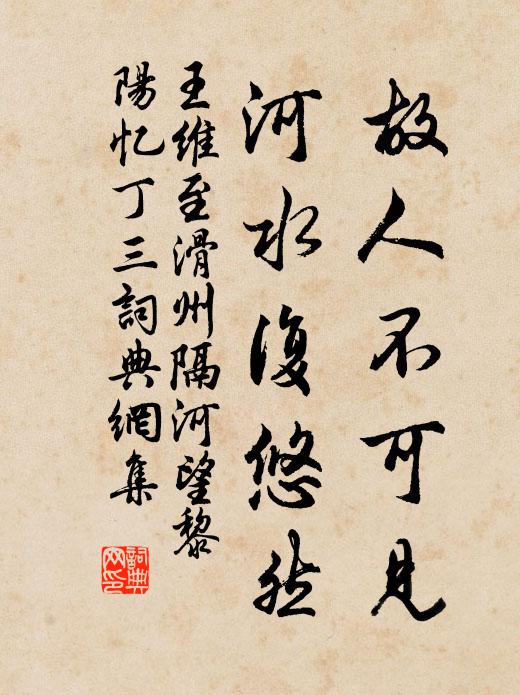 故人不可见
河水復悠然
王維至滑州隔河望黎
陽忆丁三詞典網集
詞典
网印